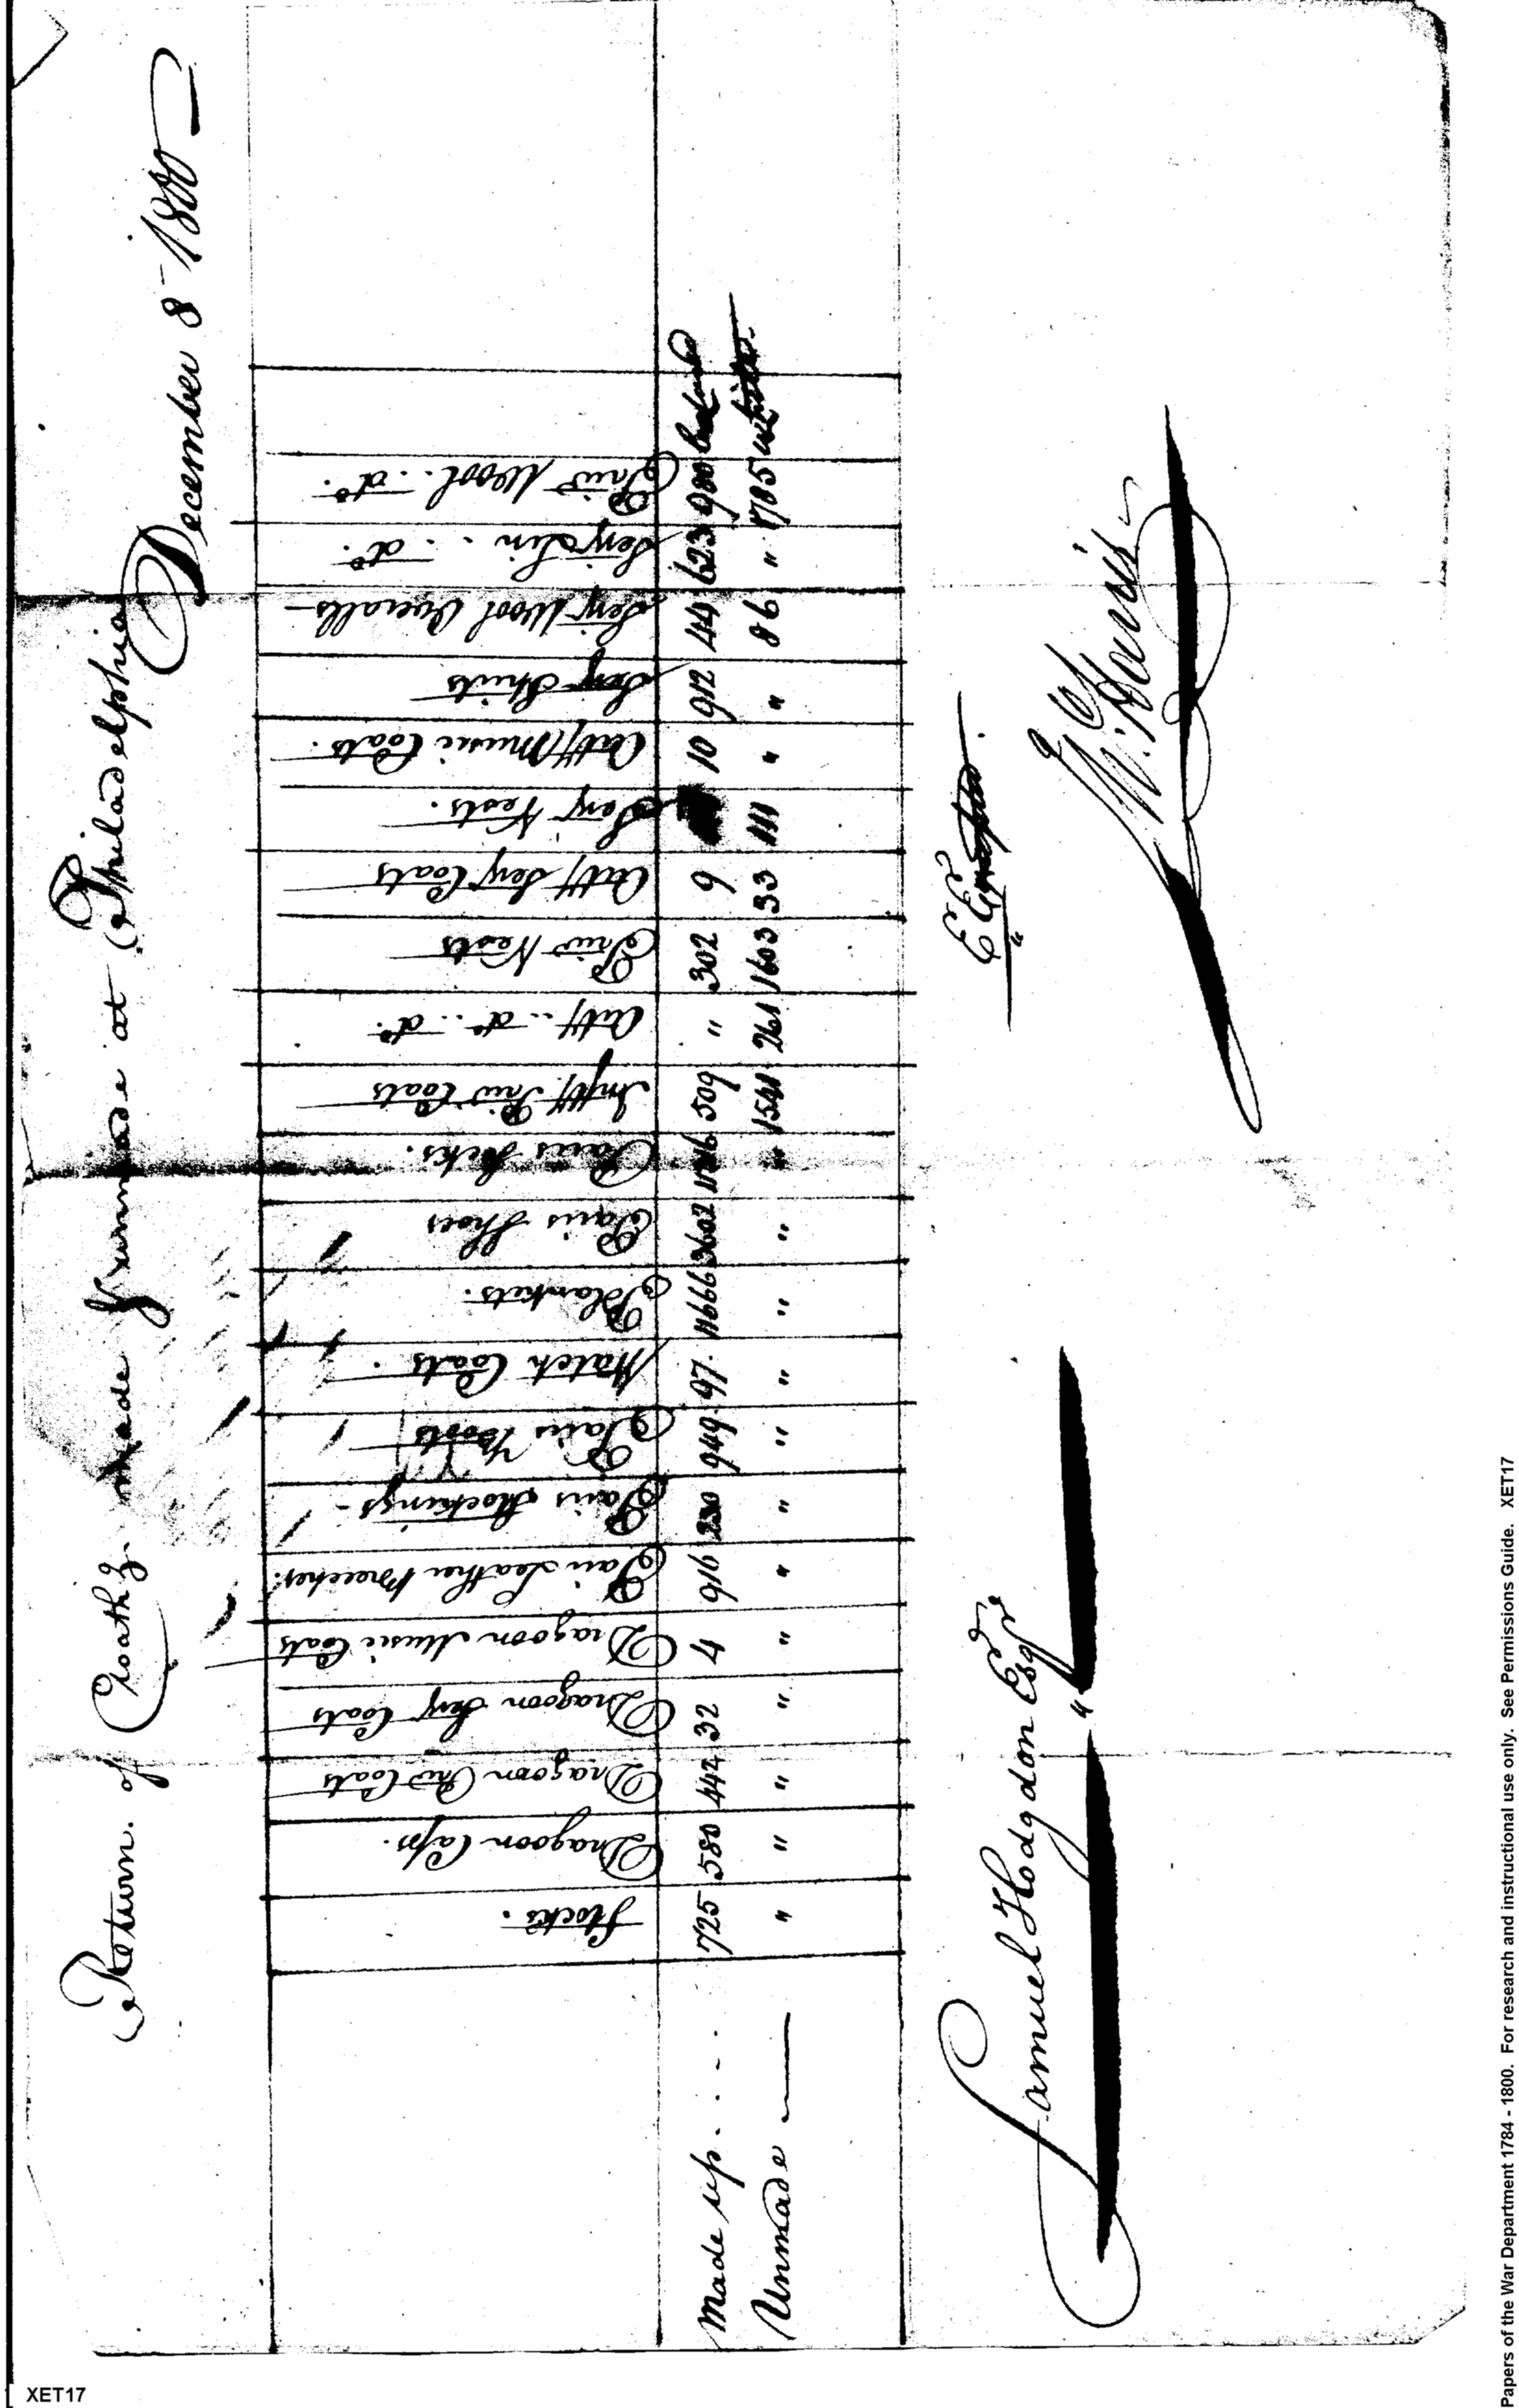 Return of Cloathg. made & unmade at Philadelphia
December 8th 1800
Stocks.
Dragoon Caps.
Dragoon Priv Coats
Dragoon Serj Coats
Dragoon Music Coats
Pair Leather Breeches.
Pairs Stockings
Pairs Boots
Watch Coats.
Blankets.
Pairs Shoes
Pairs Socks.
Infy. Priv Coats
Arty .. do .. do.
Priv Vests
Arty Serj Coats
Serj Vests.
Arty Music Coats.
Serj Shirts
Serj Wool Overalls
Serj Lin .. do.
Priv Wool .. do.
Made up. . . . 725 580 442 32 4 916 230 949 97. 4666 3602 509 " 302 9 10 912 44 623 980
Unmade " " " " " " " " " " " " 1541 261 1603 33 111 " " 86 " 1785
EE
Samuel Hodgdon Esqre
W. Harris
XET17
Papers of the War Department 1784 - 1800. For research and instructional use only. See Permissions Guide. XET17